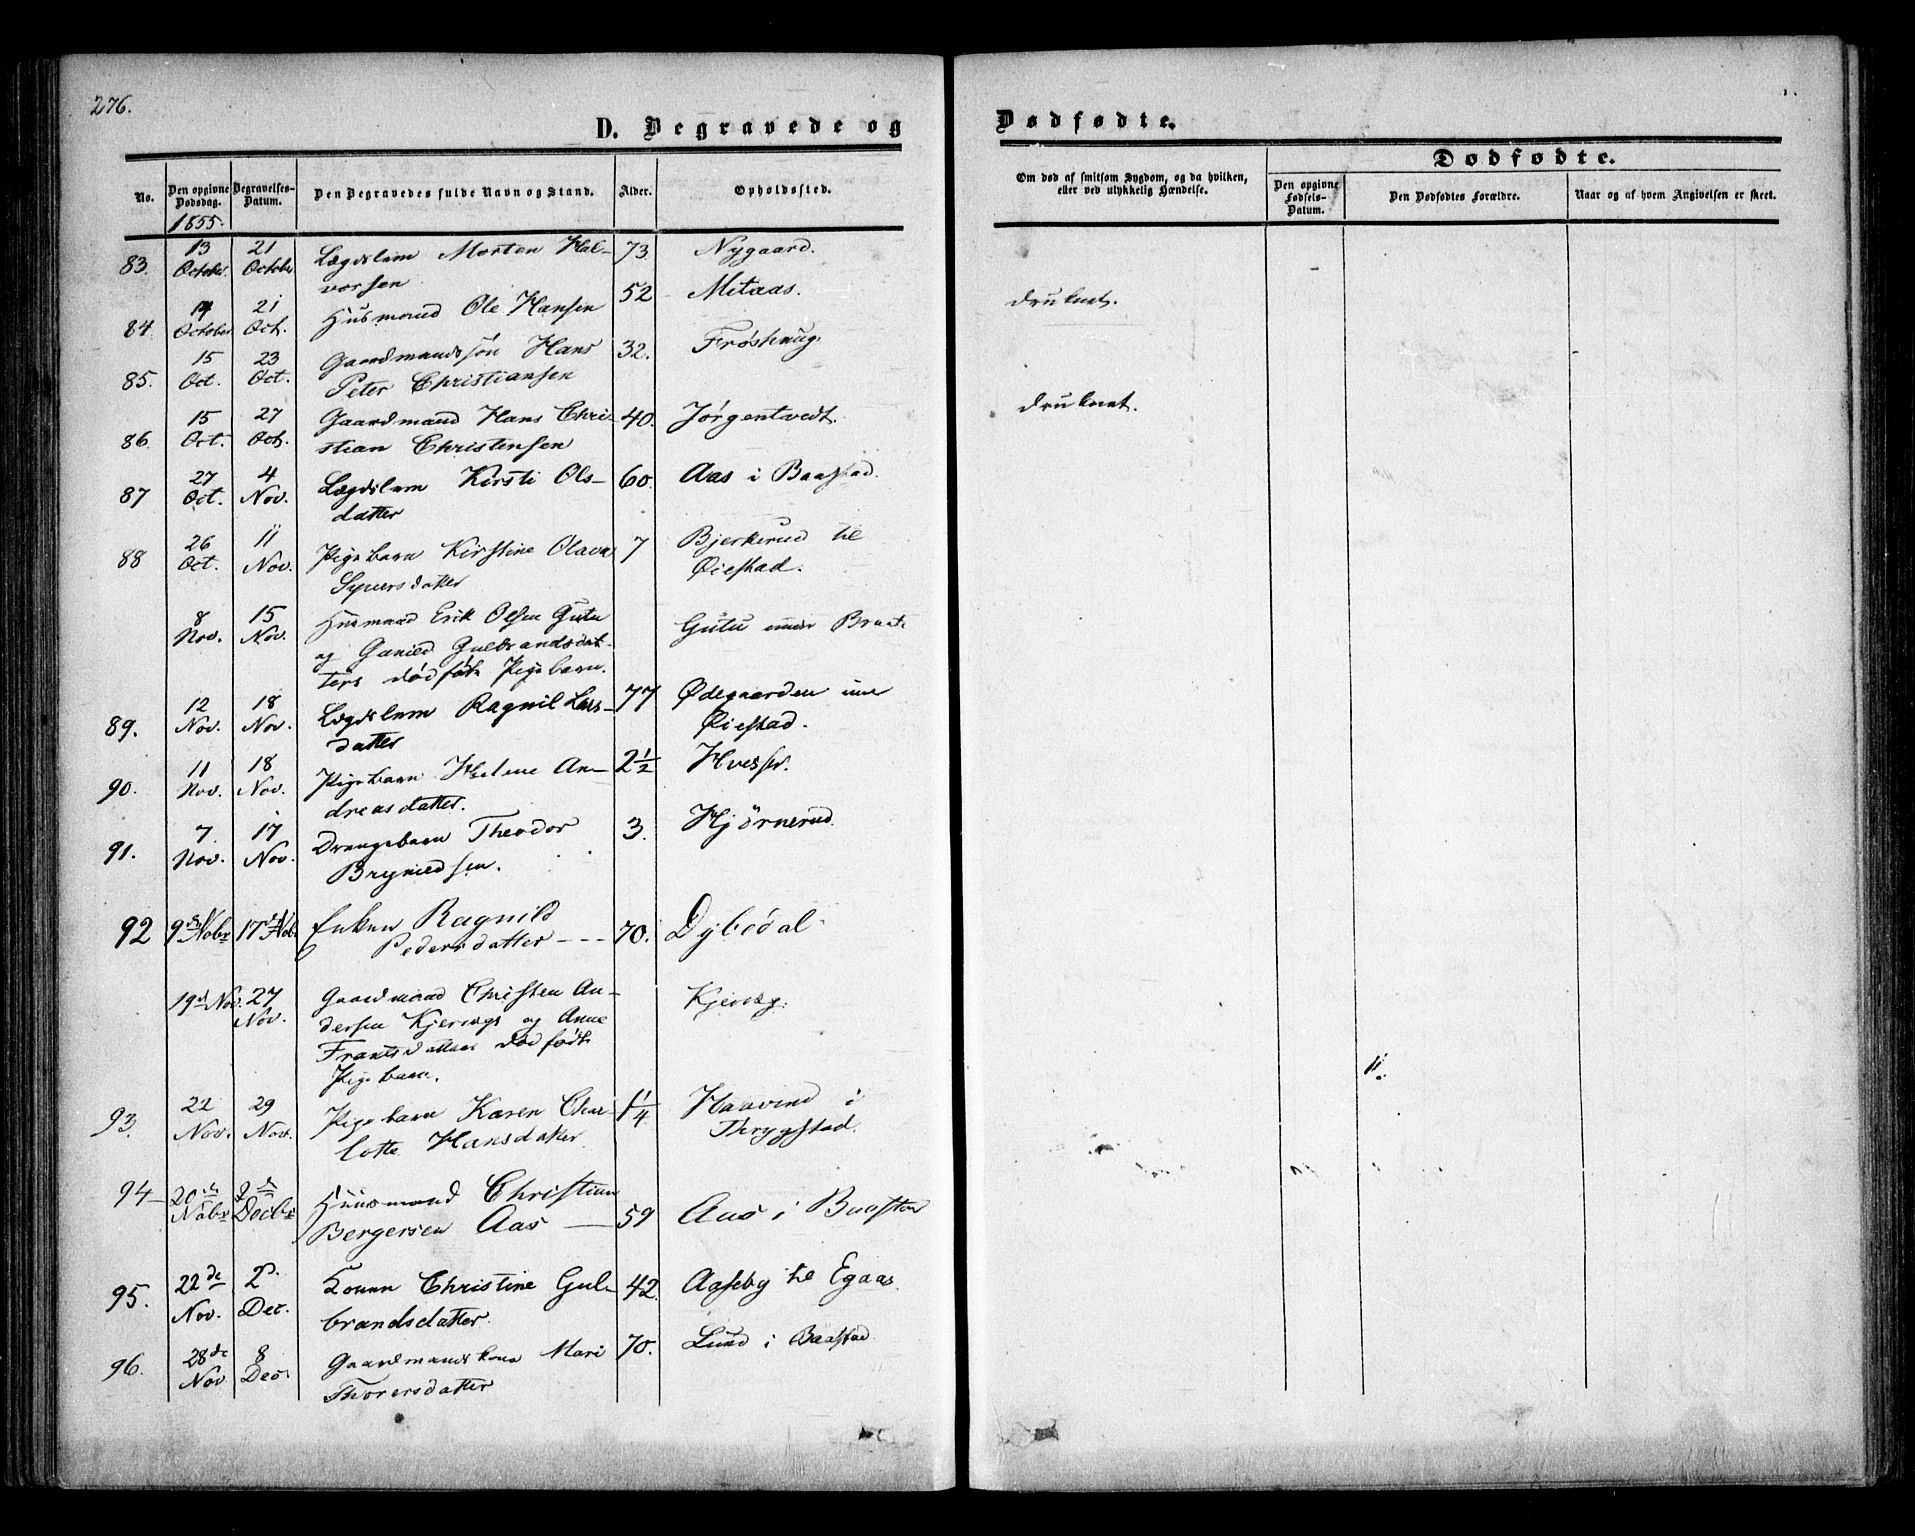 276.
D. Begravede og
No.
Den opgivne Dødsdag.
Begravelses-Datum.
Den Begravedes fulde Navn og Stand.
Alder.
Opholdssted.
1855.
83. 13 October. 21 October Lægdslem Morten Hal- 73. Nygaard.
vorsen
84. 14 October 21 Oct. Husmand Ole Hansen 52 Mitaas.
85. 15 Oct. 23 Oct. Gaardmandssøn Hans 32.
Peter Christiansen
86. 15 Oct. 27 Oct. Gaardmand Hans Chri- 40. Jørgentvedt.
stian Christensen
87 27 Oct. 4 Nov. Lægdslem Kirsti Ols- 60. Aas i Baastad.
datter
88 26 Oct. 11 Nov. Pigebarn Kirstine Olava 7 Bjerkerud til
Syversdatter Øiestad.
8 Nov. 15 Nov. Husmand Erik Olsen Gutu Gutu under
og Gunild Gulbrandsdat-
ters dødfødt Pigebarn.
89. 12 Nov. 18 Nov. Lægdslem Ragnil Lars- 77 Ødegaarden
datter Øiestad.
90. 11 Nov. 18 Nov. Pigebarn Helene An- 2 1/2
dreasdatter.
91. 7 Nov. 17 Nov. Drengebarn Theodor 3. Hjørnerud
Brynildsen.
92 9de Nobr 17de Nobr Enken Ragnild
Pedersdatter --- 70. Dybedal
19de Nov. 27 Nov. Gaardmand Christen An-
dersen Kjernsgs og Anne
Frantsdatters dødfødt
Pigebarn.
93. 22 Nov. 29 Nov. Pigebarn Karen Char 1 1/4
lotte Hansdatter Thrygstad.
94 20de Nobr 2de Decbr Huusmand Christian
Bergersen Aas — 59 Aas i Baastad
95. 22de Nov. 2d. Dec. Konen Christine Gul- 42. Aaseby til Egaas
brandsdatter.
96. 28de Nov 8 Dec Gaardmandskone Mari 70. Lund i Baastad
Thorersdatter
Dødfødte.
Om død af smitsom Sygdom, og da hvilken,
eller ved ulykkelig Hændelse.
Dødfødte.
Den opgivne Fødsels-Datum.
Den Dødfødtes Forældre.
Naar og af hvem Angivelsen er skeet.
druknet.
druknet.